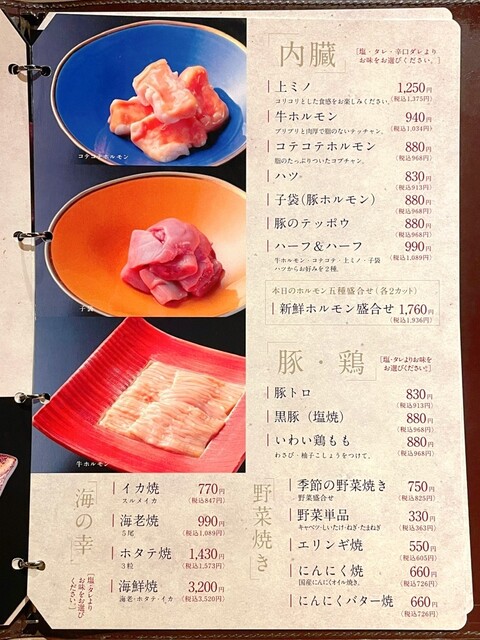 内臓
[塩・タレ・辛口ダレより
お味をお選びください。]
上ミノ 1,250円
コリコリとした食感をお楽しみください。 (税込1,375円)
牛ホルモン 940円
プリプリと肉厚で脂のないテッチャン。 (税込1,034円)
コテコテホルモン 880円
脂のたっぷりついたコプチャン。 (税込968円)
ハツ 830円
(税込913円)
子袋(豚ホルモン) 880円
(税込968円)
豚のテッポウ 880円
(税込968円)
ハーフ&ハーフ 990円
牛ホルモン・コテコテ・上ミノ・子袋 (税込1,089円)
ハツからお好みを2種。
本日のホルモン五種盛合せ(各2カット)
新鮮ホルモン盛合せ 1,760円
(税込1,936円)
豚・鶏
[塩・タレよりお味を
お選びください。]
豚トロ 830円
(税込913円)
黒豚(塩焼) 880円
(税込968円)
いわい鶏もも 880円
わさび・柚子こしょうをつけて。 (税込968円)
コテコテホルモン
子袋
牛ホルモン
海の幸
[塩・タレより
お味をお選び
ください。]
イカ焼 770円
スルメイカ (税込847円)
海老焼 990円
5尾 (税込1,089円)
ホタテ焼 1,430円
3粒 (税込1,573円)
海鮮焼 3,200円
海老・ホタテ・イカ (税込3,520円)
野菜焼き
季節の野菜焼き 750円
野菜盛合せ (税込825円)
野菜単品 330円
キャベツ・しいたけ・ねぎ・たまねぎ (税込363円)
エリンギ焼 550円
(税込605円)
にんにく焼 660円
国産にんにくオイル焼き。 (税込726円)
にんにくバター焼 660円
(税込726円)